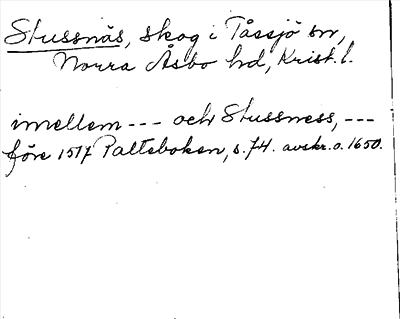 Stussnäs, skog i Tåssjö sn,
Norra Åsbo hd, Krist. l.
imellem --- och Stussness, ---
före 1517 Palteboken, s. 74. avskr. o. 1650.